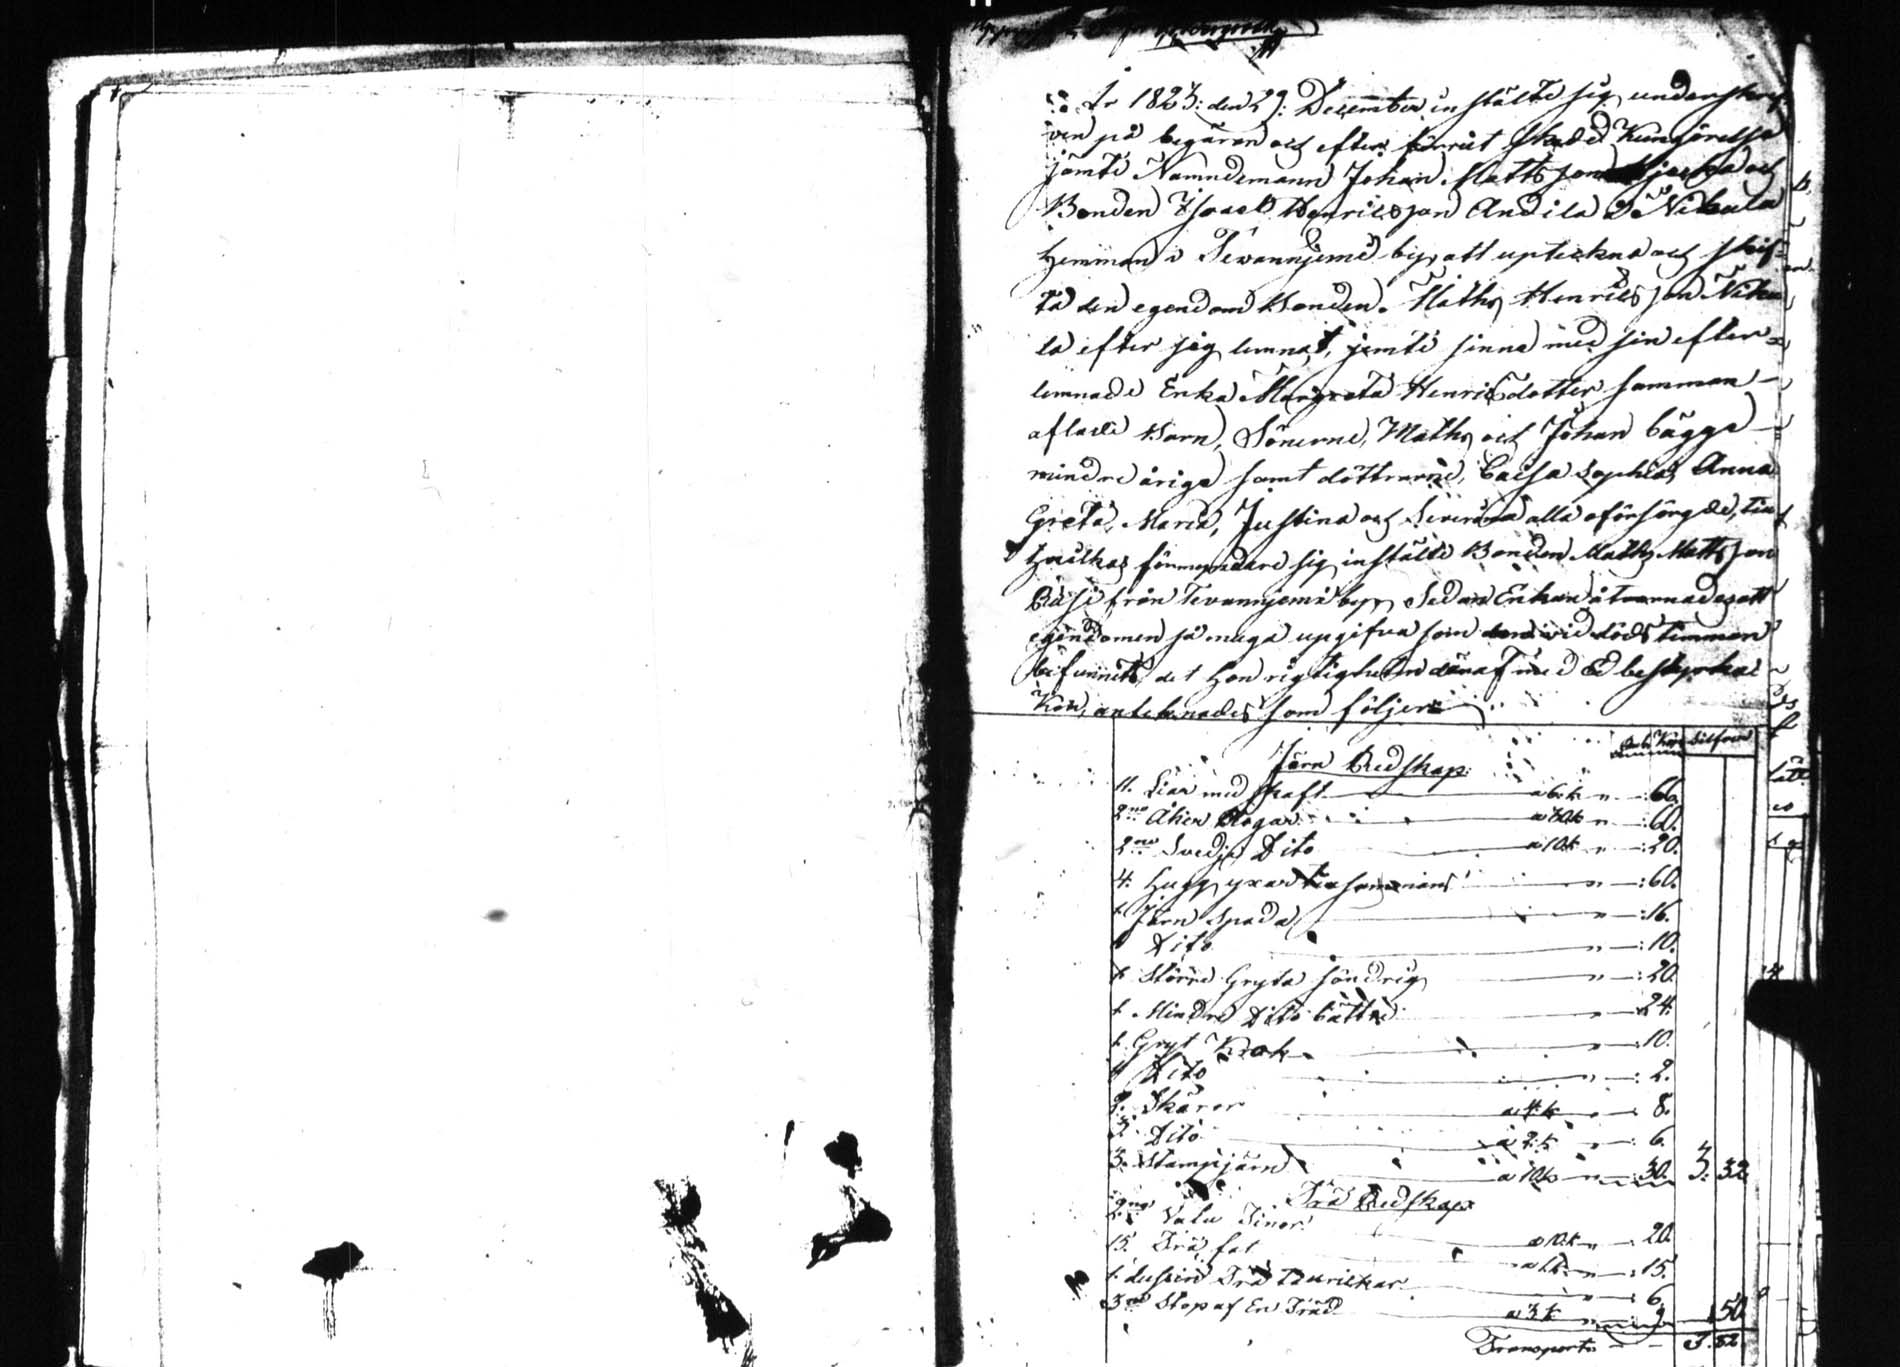 År 1823: den 29: December instälte sig underskrif-
ven på begäran och efter förut skedd Kungörelse
jämte Nämndemann Johan Mattsson och
Bonden Israel Henricsson Andila å Nikula
Hemman i Tevannjemi by, att upteckna och skif-
ta den egendom Bonden Maths Henricsson Niku
la efter sig lemnat, jemte sinna med sin efter-
lemnade Enka Margreta Henricsdotter samman-
aflade Barn, Sönerne, Maths och Johan bägge
mindre åriga samt döttrarne, Caisa Sophia, Anna
Greta, Maria, Justina och Severina alla oförsörgde, till
hvilkas förmyndare sig instälte Bonden Maths Mattsson
Räisi från Tevannjemi by, Sedan Enkan åtvarnades att
egendomen så maga upgifva som den vid dödstimman
befunnits, det Hon rigtigheten däraf med Ed bestyrka
kan, antecknades som följer
Silfver
Järn Redskap:
11. Liar med skaft a 6 k " — : 66.
2ne Åker Plogar a 30 k " — : 60.
2ne Svedje Dito a 10 k " — : 20.
4. Hugg yxar tillsammans " — : 60.
1. Järn Spada " — : 16.
1 Dito " — : 10.
1. Större Gryta söndrig " — : 20.
1. Mindre Dito bättre " — : 24.
1. Gryt Krok " — : 10.
1 Dito " — : 2.
2. Skäror a 4 k " — : 8.
3. Dito a 2 k " — : 6.
3. Stampjärn a 10 k " — : 30. 3: 32
Trä Redskap
2ne Tinor a 10 k " — : 20.
15. Trä fat a 1 k " — : 15.
1. dussin Trä tallrickar " — : 6.
3ne Stop af En Träd a 3 k " 9 : 50
Transport